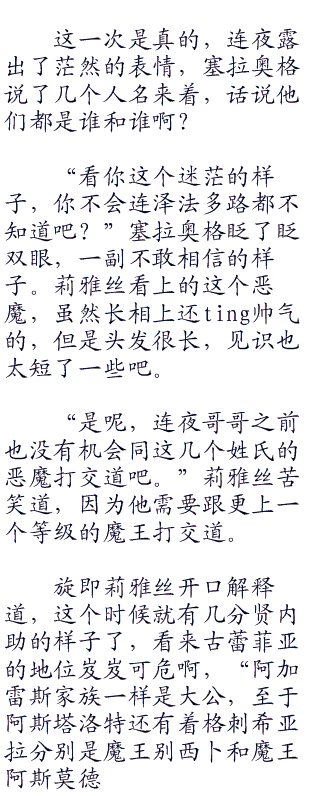 这一次是真的，连夜露
出了茫然的表情，塞拉奥格
说了几个人名来着，话说他
们都是谁和谁啊？
“看你这个迷茫的样
子，你不会连泽法多路都不
知道吧？”塞拉奥格眨了眨
双眼，一副不敢相信的样
子。莉雅丝看上的这个恶
魔，虽然长相上还ting帅气
的，但是头发很长，见识也
太短了一些吧。
“是呢，连夜哥哥之前
也没有机会同这几个姓氏的
恶魔打交道吧。”莉雅丝苦
笑道，因为他需要跟更上一
个等级的魔王打交道。
旋即莉雅丝开口解释
道，这个时候就有几分贤内
助的样子了，看来古蕾菲亚
的地位岌岌可危啊，“阿加
雷斯家族一样是大公，至于
阿斯塔洛特还有着格刺希亚
拉分别是魔王别西卜和魔王
阿斯莫德